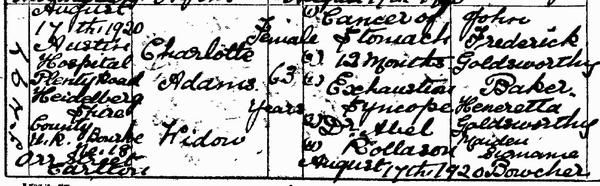 August
17th 1920
Austin
Hospital
Plenty Road
Heidelberg
Shire
County
U.R. Bourke
No. 18
Orr Street
Carlton
Charlotte
Adams
Widow
Female
63
years
(1) Cancer of
Stomach
(2) 12 Months
(1) Exhaustion
Syncope
(3) Dr. Abel
Rollason
(4) August 17th 1920
John
Frederick
Goldsworthy
Baker
Heneretta
Goldsworthy
Maiden
Surname
Bowcher